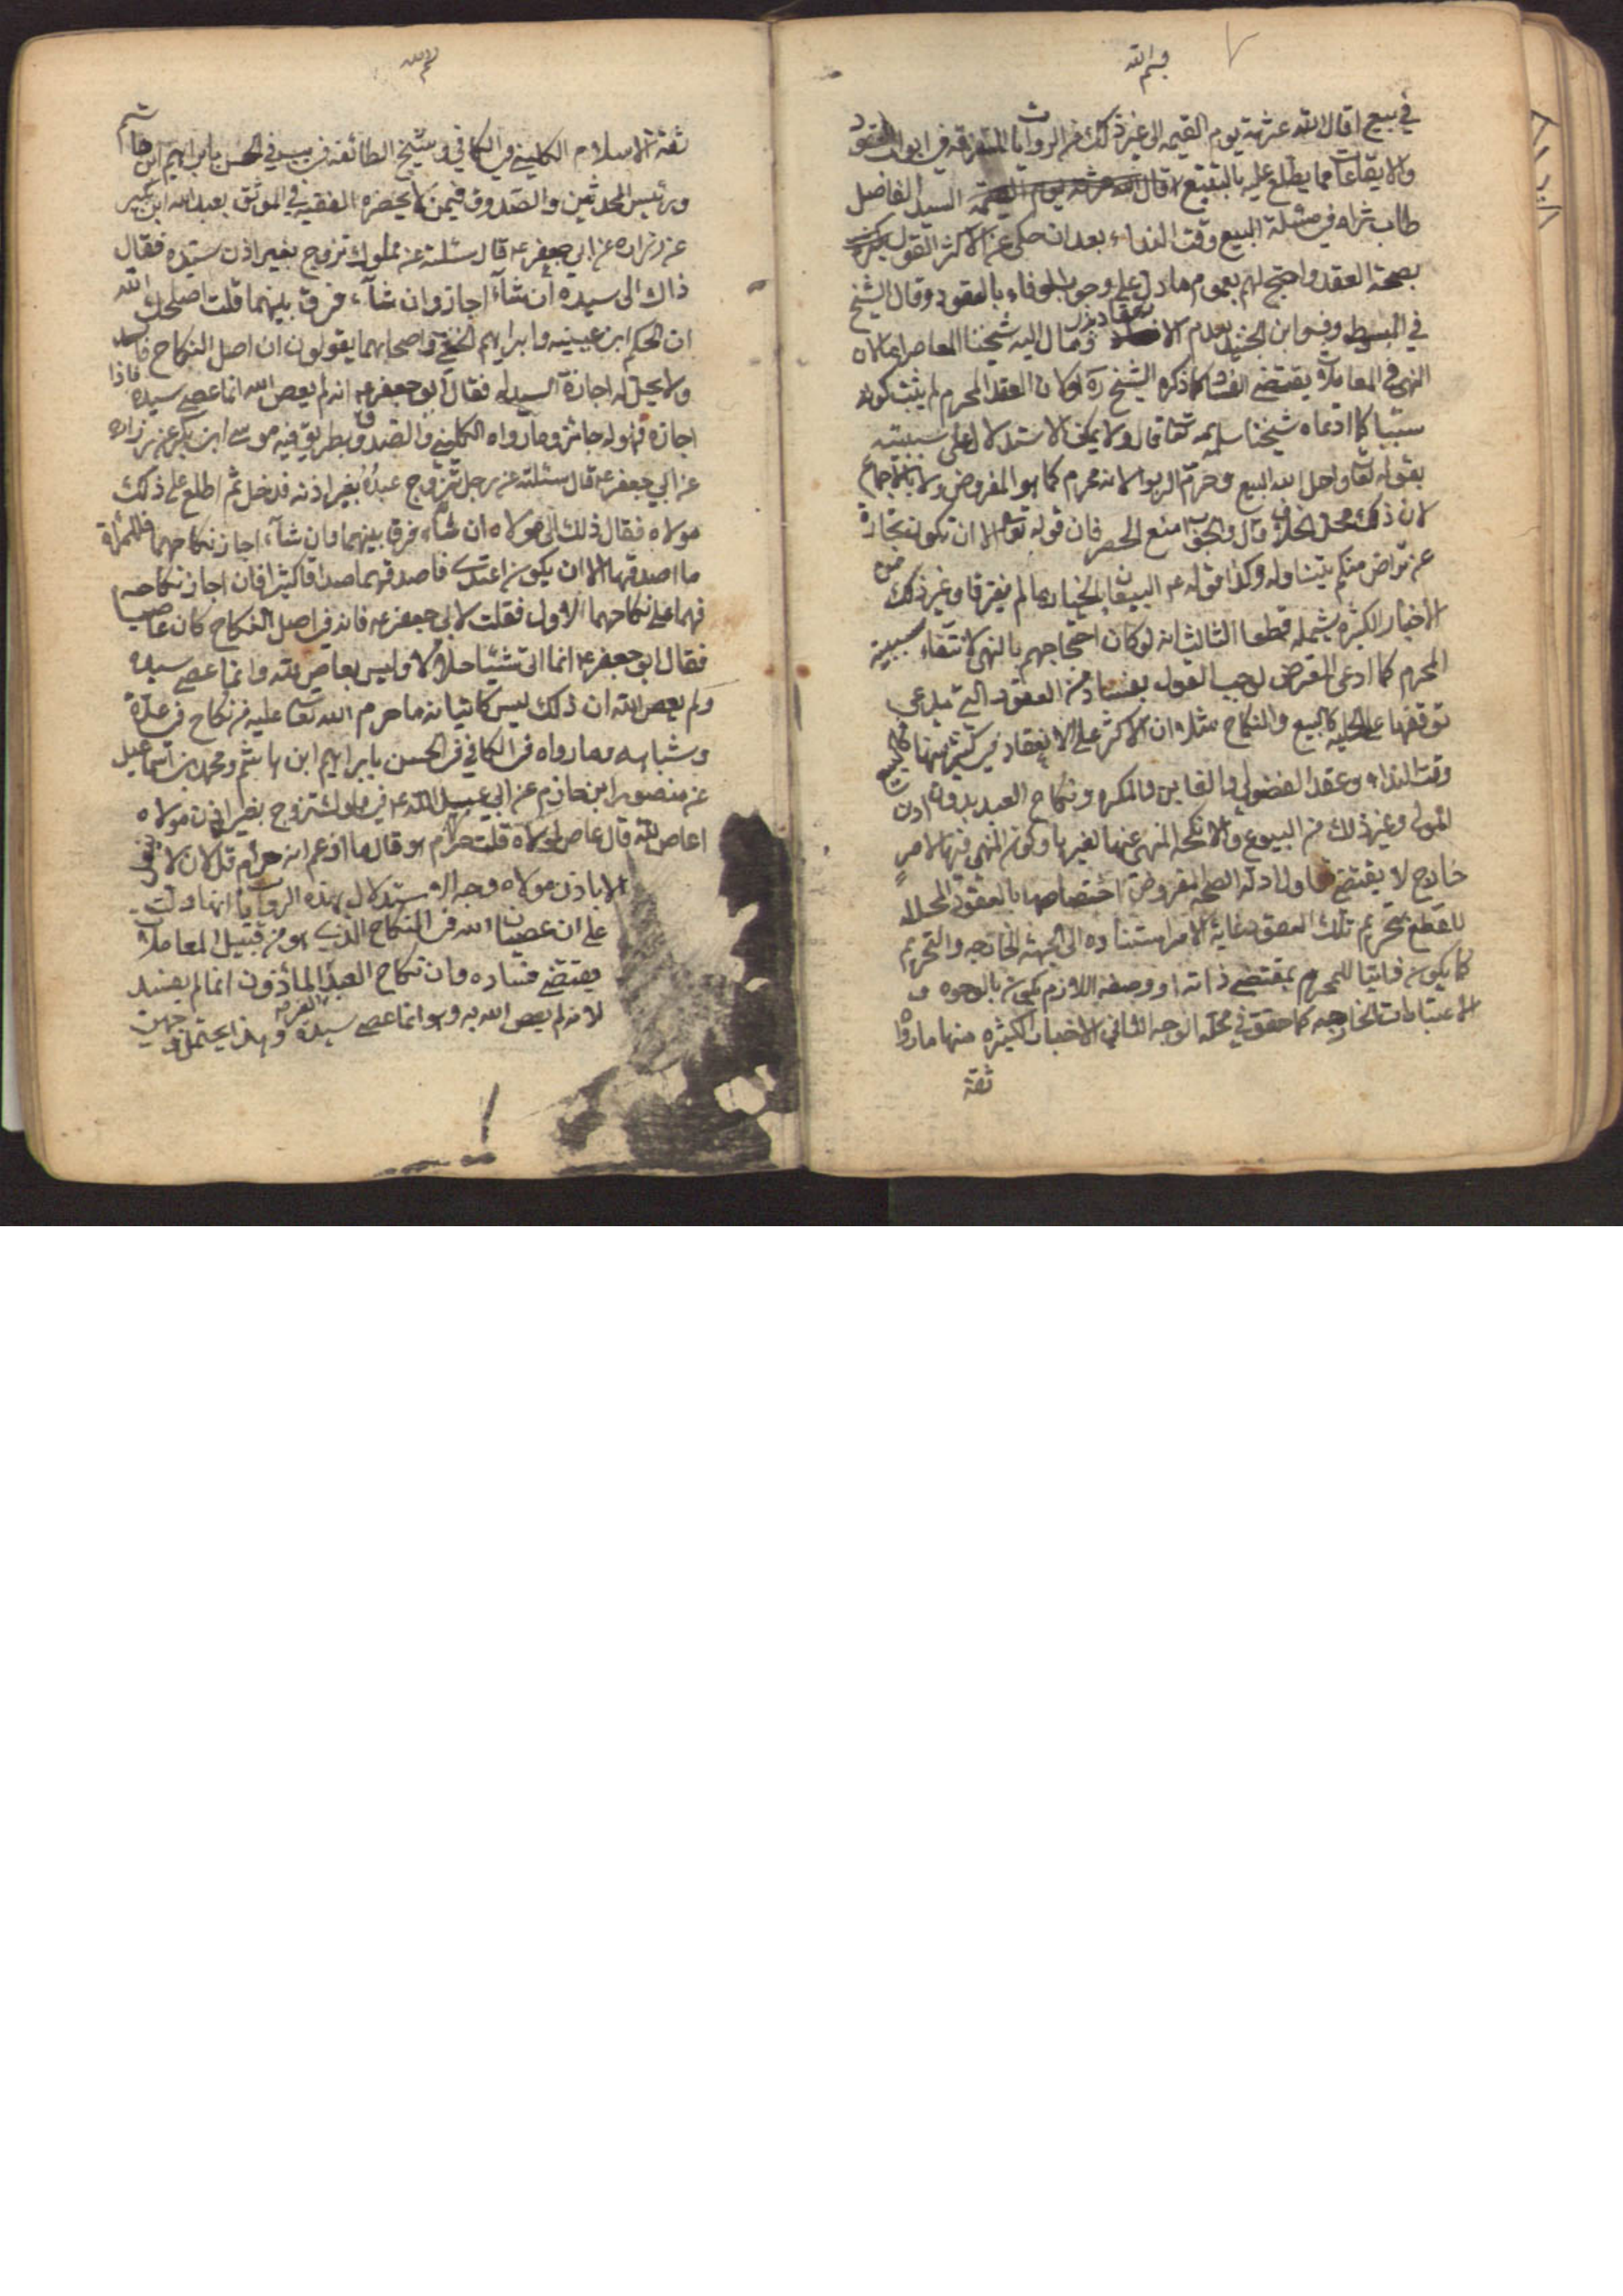 بسم الله
في بيع اقال الله عثرته يوم القيمه الى غير ذلك من الروايات المتفرقه في ابواب العقود
والايقاعات مما يطلع عليه بالتتبع قال السيد الفاضل
طاب ثراه في مسئلة البيع وقت النداء بعد ان حكى عن الاكثر القول
بصحة العقد واحتج لهم بعموم ما دل على وجوب الوفاء بالعقود وقال الشيخ
في المبسوط وابن الجنيد بعدم الانعقاد ومال اليه شيخنا المعاصر لان
النهي في المعاملات يقتضي الفساد كما ذكره الشيخ ره لو كان العقد المحرم لم يثبت كونه
سببا كما ادعاه شيخنا سلمه تعالى قال ولا يمكن الاستدلال على سببيته
بقوله تعالى واحل الله البيع وحرم الربوا لانه محرم كما هو المفروض ولا بالاجماع
لان ذلك محل الخلاف قال والحق منع الحصر فان قوله تعالى الا ان تكون تجارة
عن تراض منكم يتناوله وكذا قوله ع البيعان بالخيار ما لم يفترقا وغير ذلك من
الاخبار الكثيره يشمله قطعا الثالث انه لو كان احتجاجهم بالنهي لانتفاء سببية
المحرم كما ادعى المقرض لوجب القول بفساد من العقود التي يدعي
توقفها على الحلية كالبيع والنكاح مثلا وان الاكثر على الانعقاد في كثير منها كالبيع
وقت النداء وعقد الفضولي والغابن والمكره ونكاح العبد بدون اذن
المولى وغير ذلك من البيوع والانكحة المنهي عنها لغيرها وكون النهي فيها لامر
خارج لا يقتضي تناول ادلة الصحة لفروض اختصاصها بالعقود المحللة
للقطع بتحريم تلك العقود غاية الامر استناده الى الجهة الخارجه والتحريم
كما يكون ذاتيا للمحرم بمقتضى ذاته او وصفه اللازم يكون بالوجوه و
الاعتبارات الخارجه كما حقق في محله الوجه الثاني الاخبار الكثيره منها ما رواه
ثقة
بسم الله
ثقة الاسلام الكليني في الكافي وشيخ الطائفه في يب في الحسن بابراهيم ابن هاشم
ورئيس المحدثين والصدوق فيمن لا يحضره الفقيه في الموثق بعبد الله ابن بكير
عن زراره عن ابي جعفر ع قال سئلته عن مملوك تزوج بغير اذن سيده فقال
ذاك الى سيده ان شاء اجاز وان شاء فرق بينهما قلت اصلحك الله
ان الحكم ابن عيينه وابراهيم النخعي واصحابهما يقولون ان اصل النكاح فاسد
ولا يحل له اجازة السيد له فقال ابو جعفر ع انه لم يعص الله انما عصى سيده فاذا
اجازه فهو له جائز وما رواه الكليني والصدوق بطريق فيه موسى ابن بكر عن زراره
عن ابي جعفر ع قال سئلته عن رجل تزوج عبده بغير اذنه فدخل ثم اطلع على ذلك
مولاه فقال ذلك الى مولاه ان شاء فرق بينهما وان شاء اجاز نكاحهما فللمرأة
ما اصدقها الا ان يكون اعتدى فاصدقهما صداقا كثيرا فان اجاز نكاحه
فهما على نكاحهما الاول فقلت لابي جعفر ع فانه في اصل النكاح كان عاصيا
فقال ابو جعفر ع انما اتى شيئا حلالا وليس بعاص لله وانما عصى سيده
ولم يعص الله ان ذلك ليس كاتيانه ما حرم الله تعالى عليه من نكاح في عدة
وشباهه وما رواه في الكافي في الحسن بابراهيم ابن هاشم ومحمد بن اسماعيل
عن منصور ابن حازم عن ابي عبد الله ع في مملوك تزوج بغير اذن مولاه
اعاص لله قال عاص لمولاه قلت حرام هو قال ما ازعم انه حرام قل لان لا
الا باذن مولاه وجه الاستدلال بهذه الروايات انها دلت
على ان عصيان الله في النكاح الذي هو من قبيل المعاملات
يقتضي فساده وان نكاح العبد المأذون انما لم يفسد
لانه لم يعص الله به وهو انما عصى سيده وهذا يحتمل جهتين